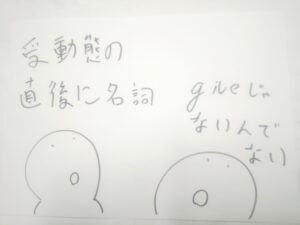 受動態の
直後に名詞
giveじゃ
ないんで
ない